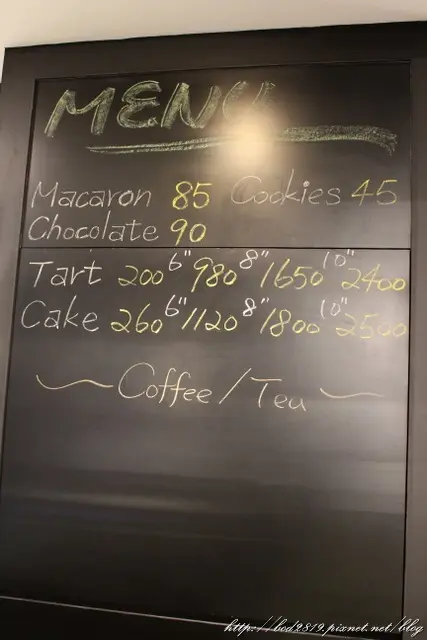 MENU
Macaron 85 Cookies 45
Chocolate 90
Tart 200 6" 980 8" 1650 10" 2400
Cake 260 6" 1120 8" 1800 10" 2500
~ Coffee / Tea ~
http://bod2819.pixnet.net/blog